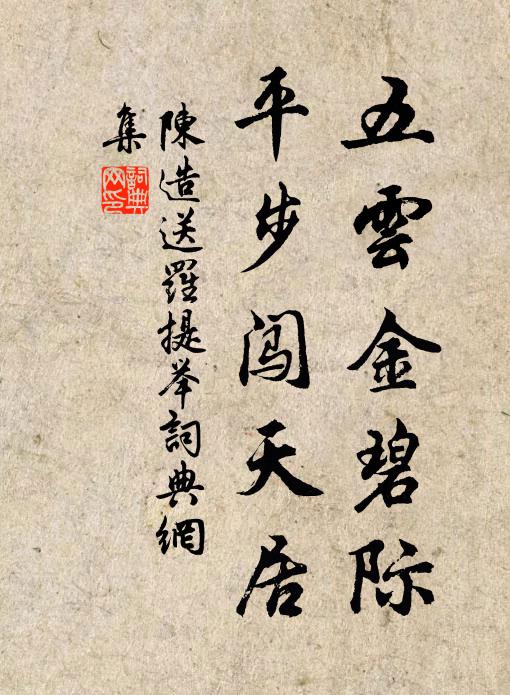 五雲金碧际
平步闯天居
陳造送羅提举詞典網
集
詞典
网印